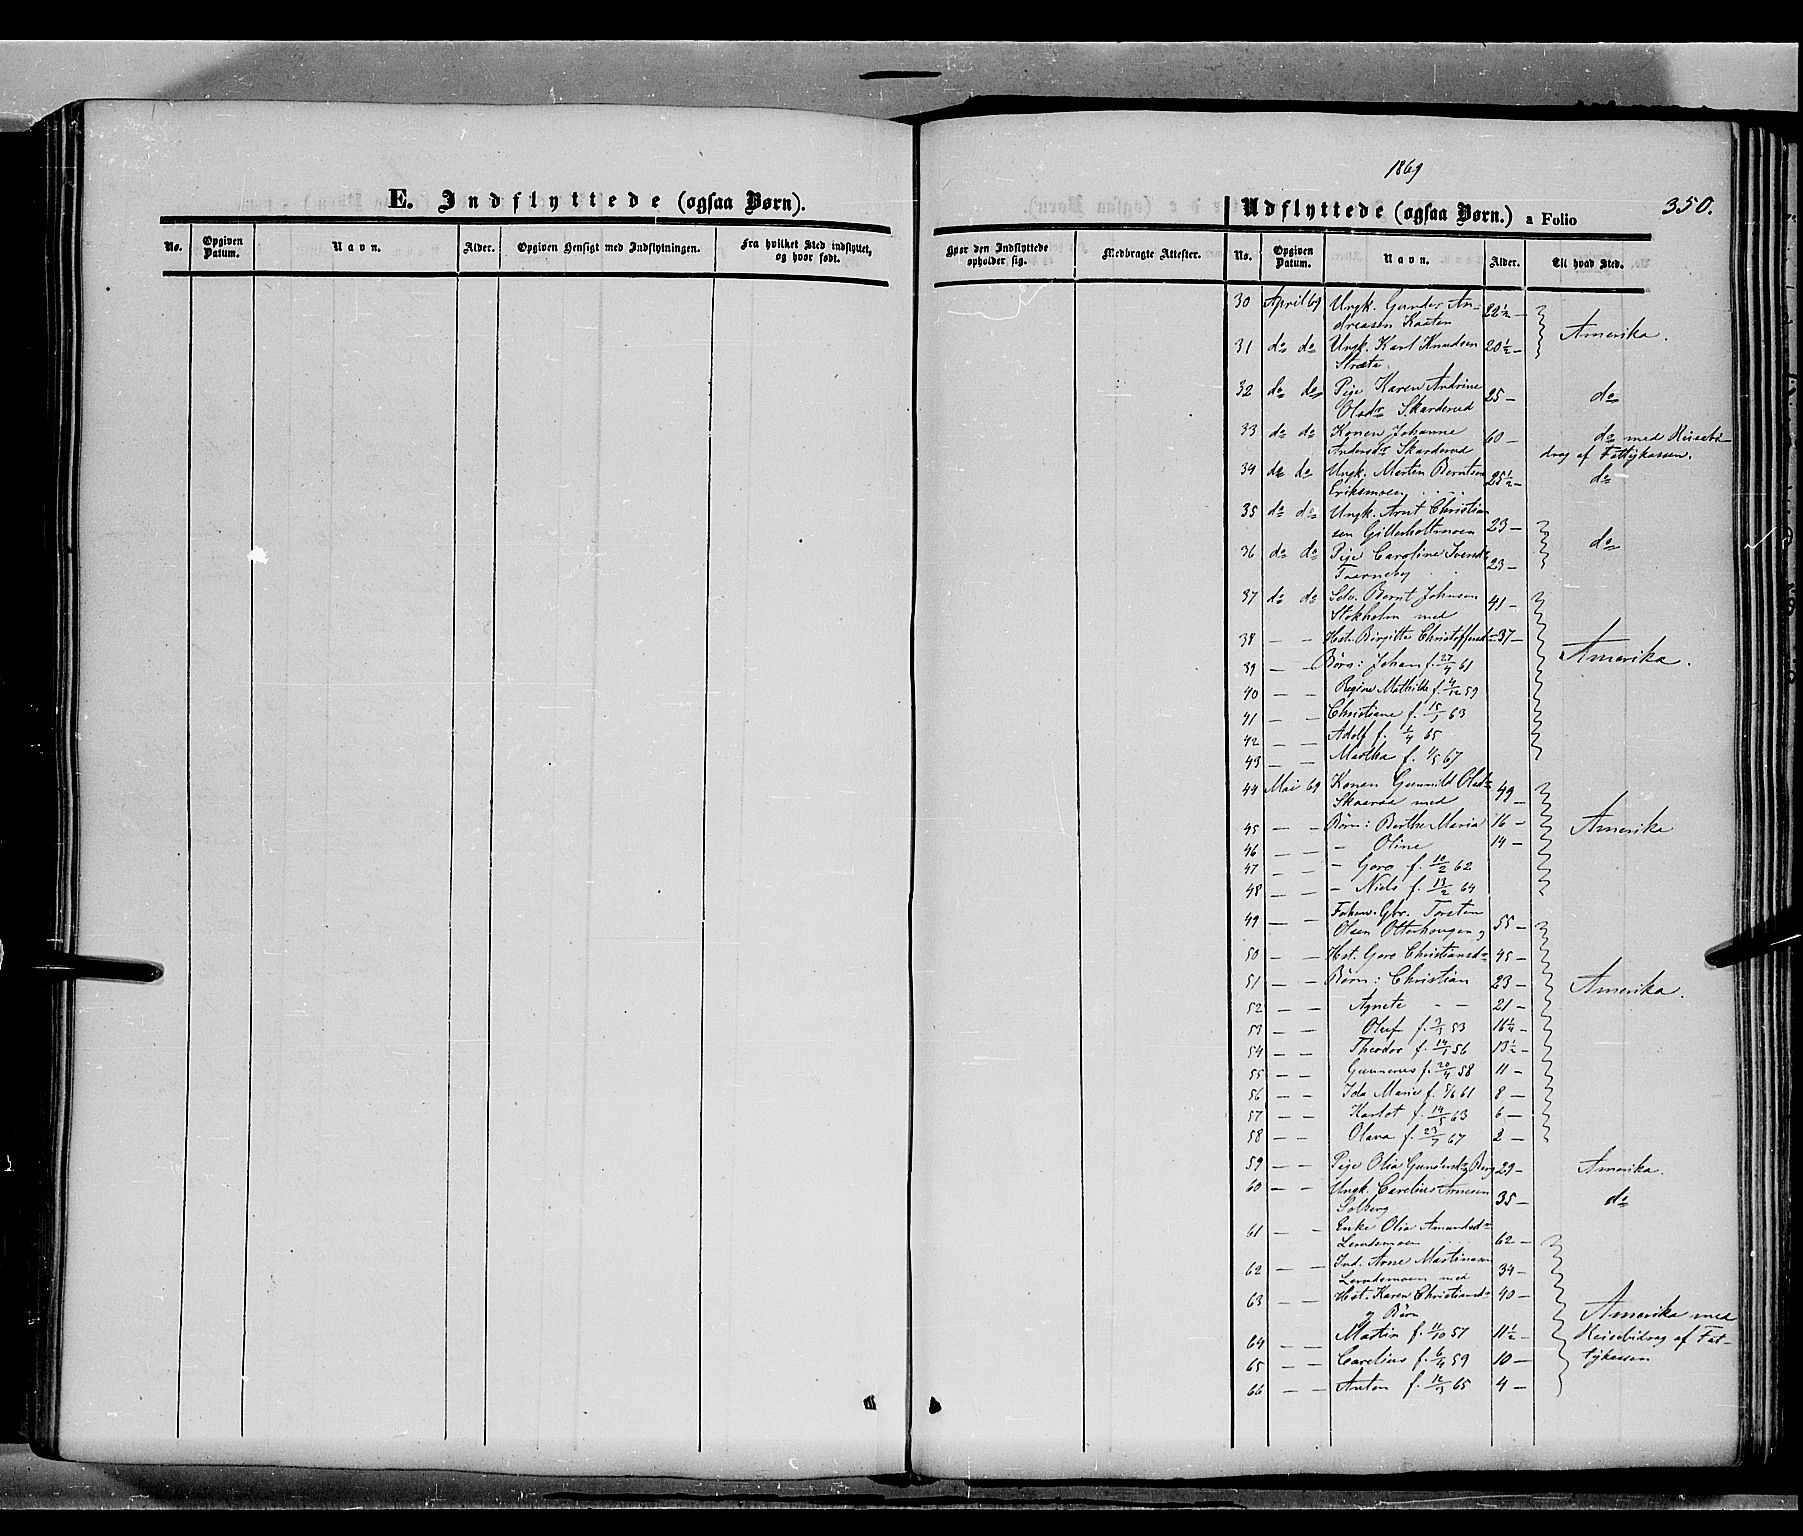 1869
E. Indflyttede (ogsaa Børn).
Udflyttede (ogsaa Børn.) a Folio
350.
No. Opgiven Datum. Navn. Alder. Opgiven Hensigt med Indflytningen. Fra hvilket Sted indflyttet, og hvor født.
Hvor den Indflyttede opholder sig. Medbragte Attester. No. Opgiven Datum. Navn. Alder. Til hvad Sted.
30 April 69 Ungk. Gunder An-
dreasen Kaaten 22½ –
Amerika.
31 do do Ungk. Karl Knudsen 20½ –
Stræte
32 do do Pige Karen Andrine
Olsdr Skarderud 25 – do
33 do do Konen Johanne
Andersdr Skarderud 60 – do med Reisebi-
drag af Fattigkassen.
34 do do Ungk. Morten Berntsen 25½ – do
Eriksmoen
35 do do Ungk. Arnt Christian
sen Gilterholtmoen 23 –
do
36 do do Pige Caroline Svendsdr
Taarneby 23 –
37 do do Selv. Bernt Johnsen
Stokholm med 41 –
38 – – Hst. Birgitte Christoffersdr 37 –
Amerika.
39 – – Børn: Johan f. 27/4 61
40 – – Regine Mathilde f. 4/12 59
41 – – Christiane f. 15/1 63
42 – – Adolf f. 1/4 65
43 – – Martha f. 1/5 67
44 Mai 69 Konen Gunnild Olsdr
Skaaraa med 49 –
45 – – Børn: Berthe Maria 16 –
Amerika
46 – – – Oline 14 –
47 – – – Goro f. 10/2 62
48 – – – Niels f. 13/2 64
49 – – Forhenv. Gbr. Torsten
Olsen Otterhougen og 55 –
50 – – Hst. Goro Christiansdr 45 –
51 – – Børn: Christian 23 –
Amerika.
52 – – Agnete – – 21 –
53 – – Oluf f. 3/1 53 16¼ –
54 – – Theodor f. 14/1 56 13½ –
55 – – Gunnerus f. 20/4 58 11 –
56 – – Ida Marie f. 5/6 61 8 –
57 – – Karlot f. 14/5 63 6 –
58 – – Olava f. 23/7 67 2 –
59 – – Pige Olia Gundersdr Berg 29 – Amerika.
60 – – Ungk. Carelius Arnesen
Solberg 35 – do
61 – – Enke Olia Amundsdr
62 –
62 – – Ind. Arne Martinsen
med 34 –
63 – – Hst. Karen Christiansdr 40 –
og Børn
Amerika med
Reisebidrag af Fat-
tigkassen
64 – – Martin f. 11/10 57 11½ –
65 – – Carelius f. 6/4 59 10 –
66 – – Anton f. 16/3 65 4 –